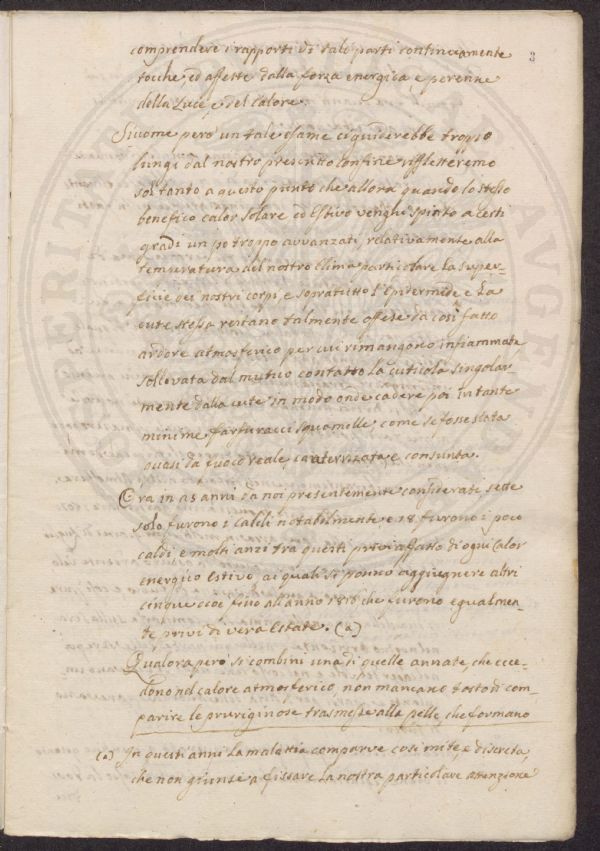 3
comprendere i rapporti di tali parti continuamente
tocche, ed affette dalla forza energica, e perenne
della Luce, e del Calore.
Siccome però un tale esame ci guiderebbe troppo
lungi dal nostro presente confine riffletteremo
soltanto a questo punto che allora quando lo stesso
benefico calor solare ed Estivo venghi spinto a certi
gradi un po troppo avvanzati relativamente alla
temperatura del nostro Clima particolare la super-
ficie dei nostri corpi, e sopratutto l'Epidermide e la
cute stessa restano talmente offese da così fatto
ardore atmosferico per cui rimangono infiammate
sollevata dal mutuo contatto la cuticola singolar
mente dalla cute in modo onde cadere poi in tante
minime farfuracci squamelle come se fosse stata
quasi da fuoco reale, caaterrizata, e consunta.
Ora in 25 anni da noi presentemente considerati sette
solo furono i caldi notabilmente, e 18 furono i poco
caldi, e molti anzi tra questi privi affatto di ogni Calor
energico Estivo, ai quali si ponno aggiugnere altri
cinque cioè fino all'anno 1818 che furono egualmen-
te privi di vera Estate. (a)
Qualora però si combini una di quelle annate, che ecce-
dono nel calore atmosferico, non mancano tosto di com-
parire le pruriginose trasmesse alla pelle, che formano
(a) In questi anni la malattia comparve così mite, e discreta,
che non giunse a fissare la nostra particolare attenzione
POSTERITATI
AVGE